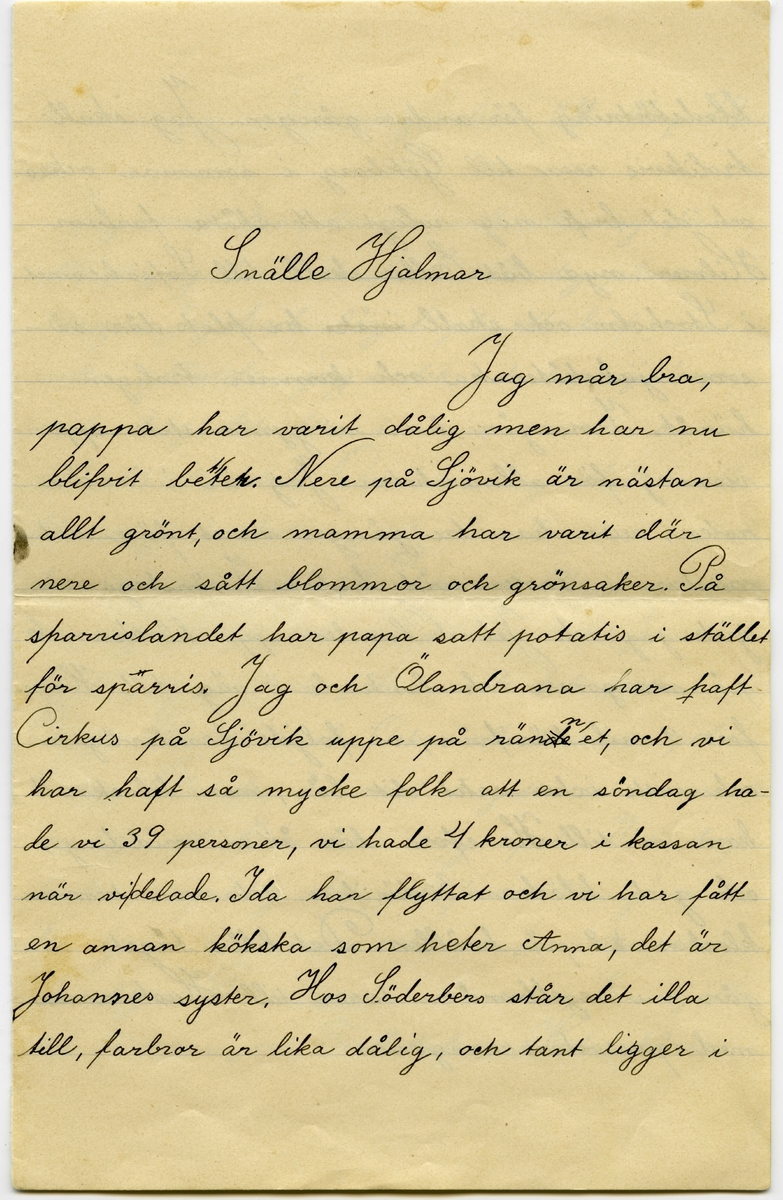 Snälle Hjalmar
Jag mår bra,
pappa har varit dålig men har nu
blifvit bätter. Nere på Sjövik är nästan
allt grönt, och mamma har varit där
nere och sått blommor och grönsaker. På
sparrislandet har papa satt potatis i stället
för sparris. Jag och Ölandrana har haft
Cirkus på Sjövik uppe på rännet, och vi
har haft så mycke folk att en söndag ha-
de vi 39 personer, vi hade 4 kroner i kassan
när vi delade. Ida har flyttat och vi har fått
en annan kökska som heter Anna, det är
Johannes syster. Hos Söderbers står det illa
till, farbror är lika dålig, och tant ligger i